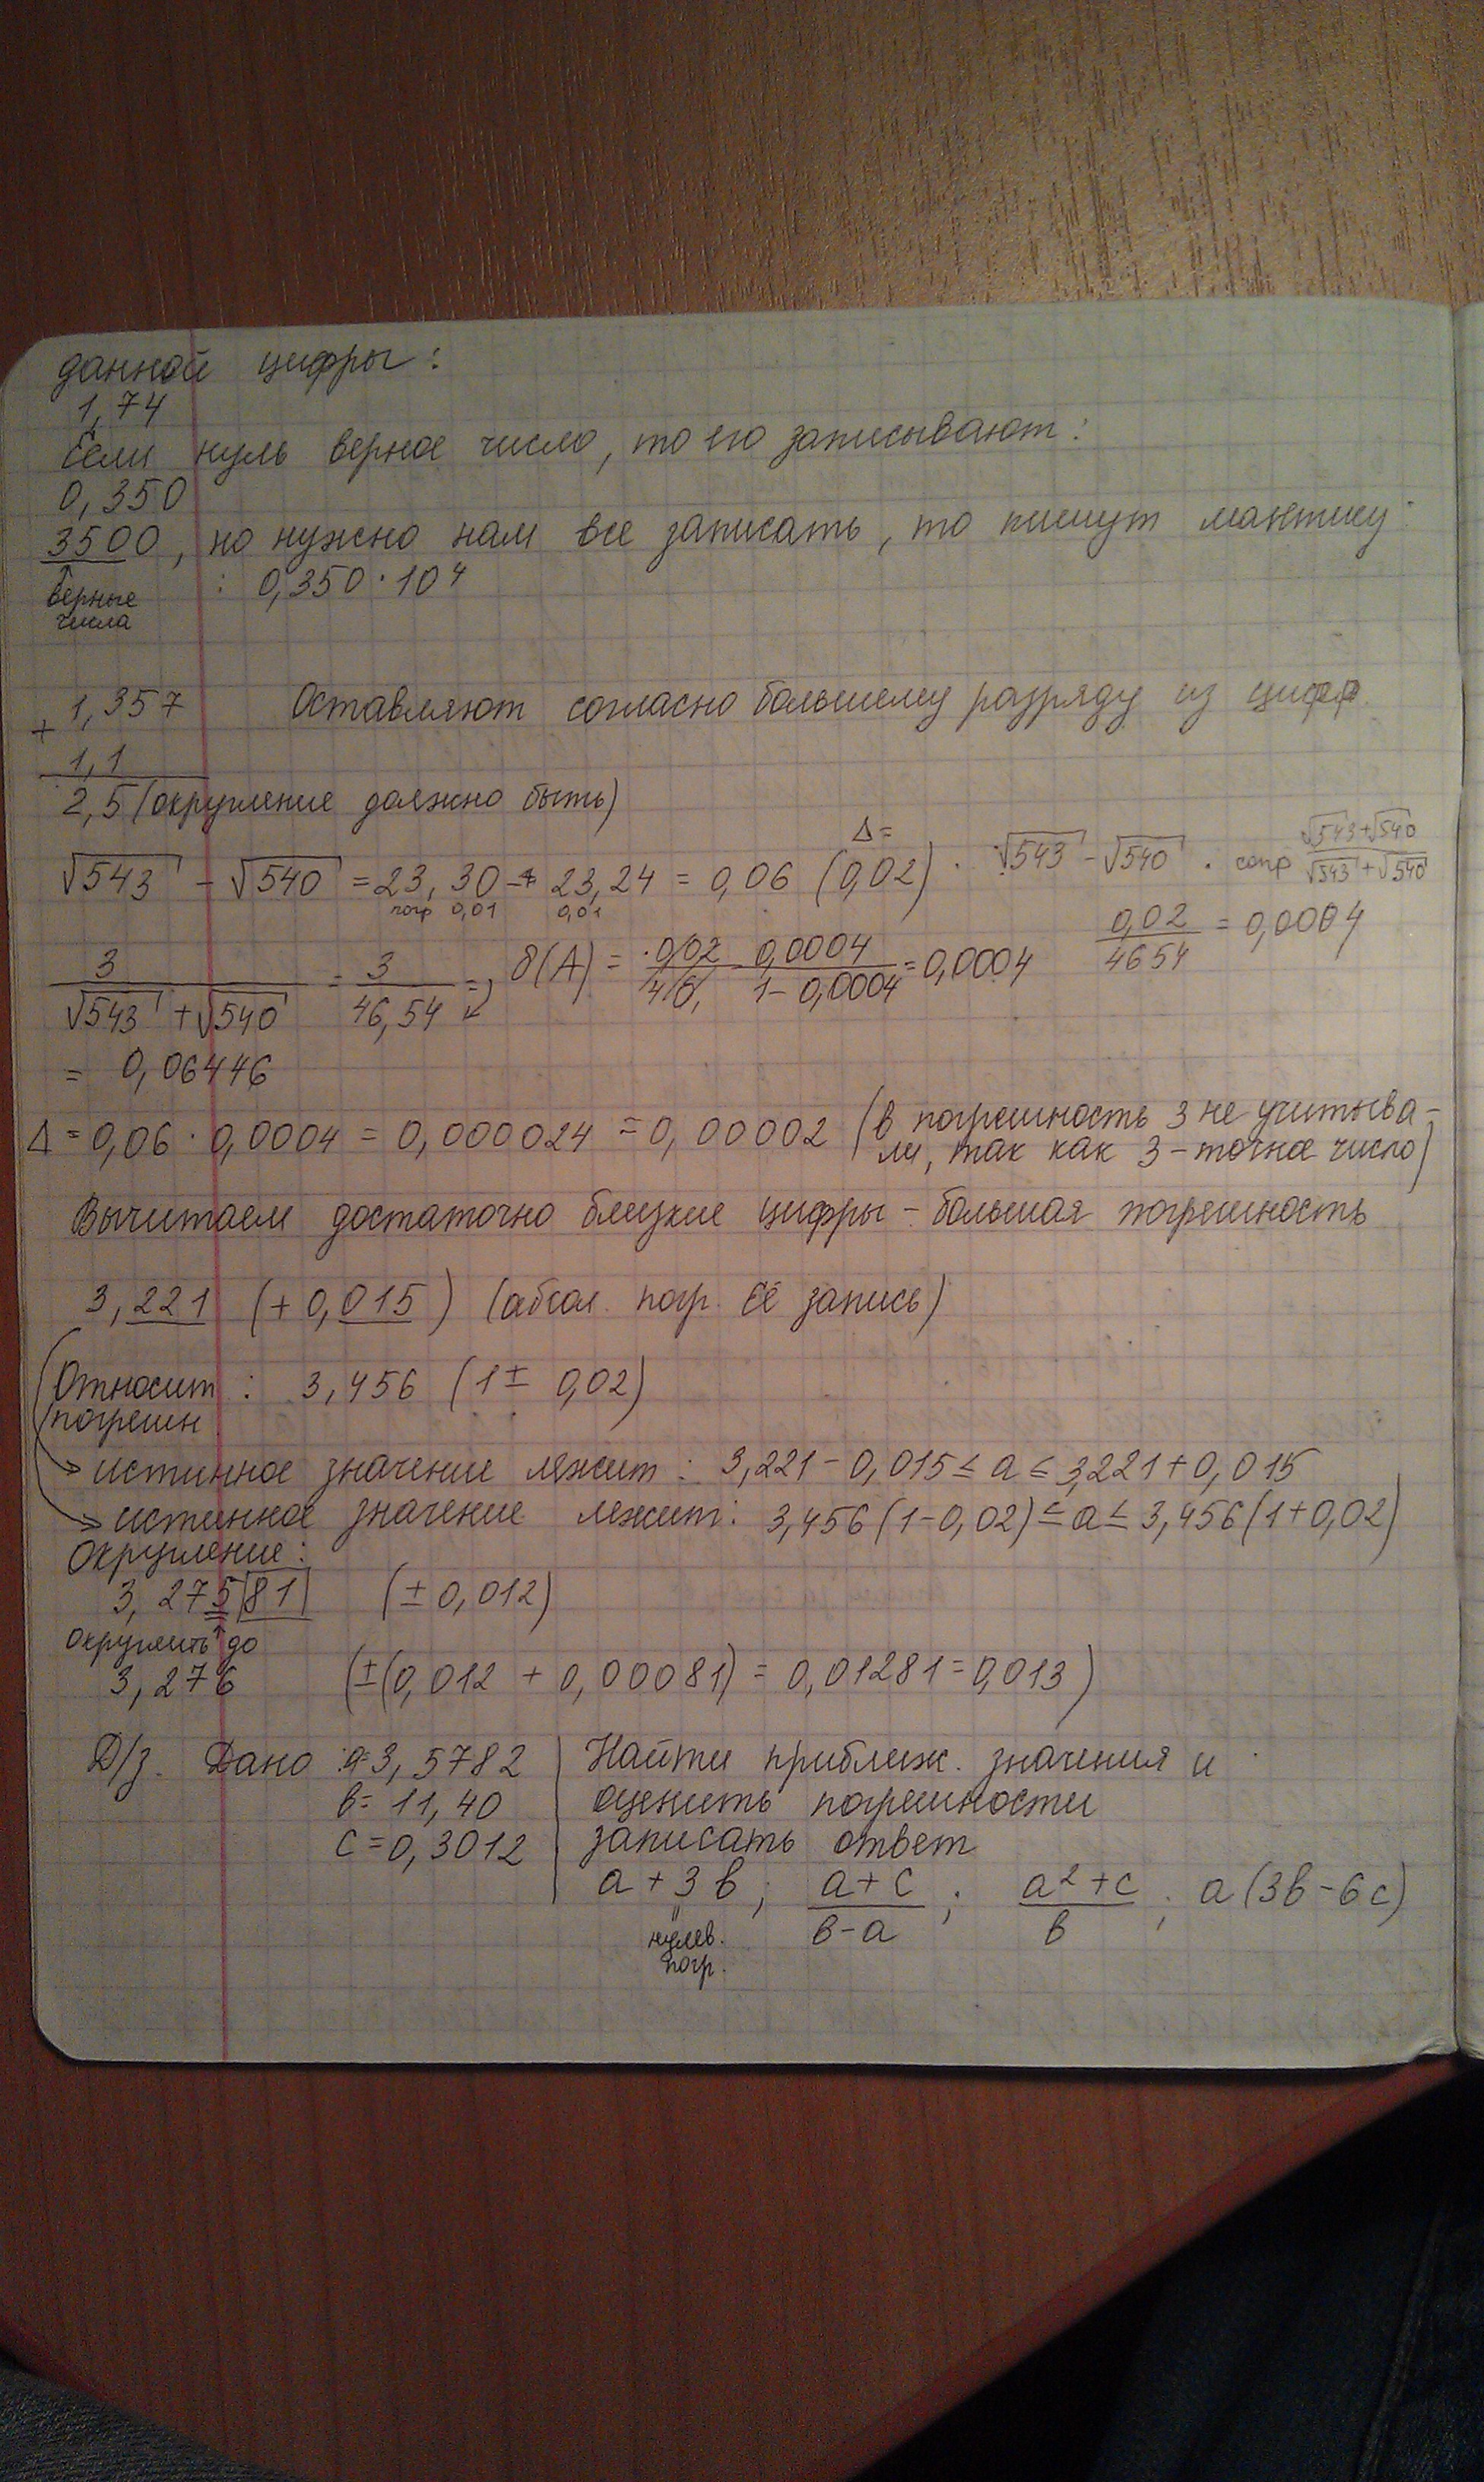 данной цифры:
1,74
Если нуль верное число, то его записывают:
0,350
3500, но нужно нам все записать, то пишут мантису
верные числа : 0,350·10⁴
1,357 Оставляют согласно большему разряду из цифр.
+
1,1
2,5 (округление должно быть)
√543 - √540 = 23,30 - 23,24 = 0,06 (Δ= 0,02) · √543 - √540 · сопр (√543+√540)/(√543+√540)
погр 0,01 0,01
0,02/4654 = 0,0004
3/(√543 + √540) = 3/46,54 = , δ(A) = 0,0004/(1-0,0004) = 0,0004
= 0,06446
Δ = 0,06 · 0,0004 = 0,000024 = 0,00002 (в погрешность 3 не учитыва-
ли, так как 3 - точное число)
Вычитаем достаточно близкие цифры - большая погрешность
3,221 (± 0,015) (абсол. погр. её запись)
Относит : 3,456 (1 ± 0,02)
погрешн
истинное значение лежит: 3,221 - 0,015 ≤ a ≤ 3,221 + 0,015
истинное значение лежит: 3,456(1-0,02) ≤ a ≤ 3,456(1+0,02)
Округление:
3,275|81| (± 0,012)
округлить до
3,276 (±(0,012 + 0,00081) = 0,01281 = 0,013)
Д/з. Дано: a=3,5782 | Найти приближ. значения и
в= 11,40 оценить погрешности
c=0,3012 записать ответ
a + 3в; (a+c)/(в-a); (a²+c)/в; a(3в-6c)
нулев.
погр.